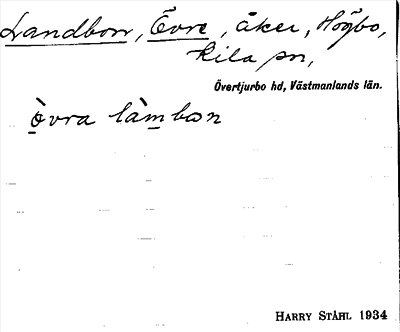 Landborr, Övre, åker, Högbo,
Kila sn,
Övertjurbo hd, Västmanlands län.
òvra làmbon
HARRY STÅHL 1934